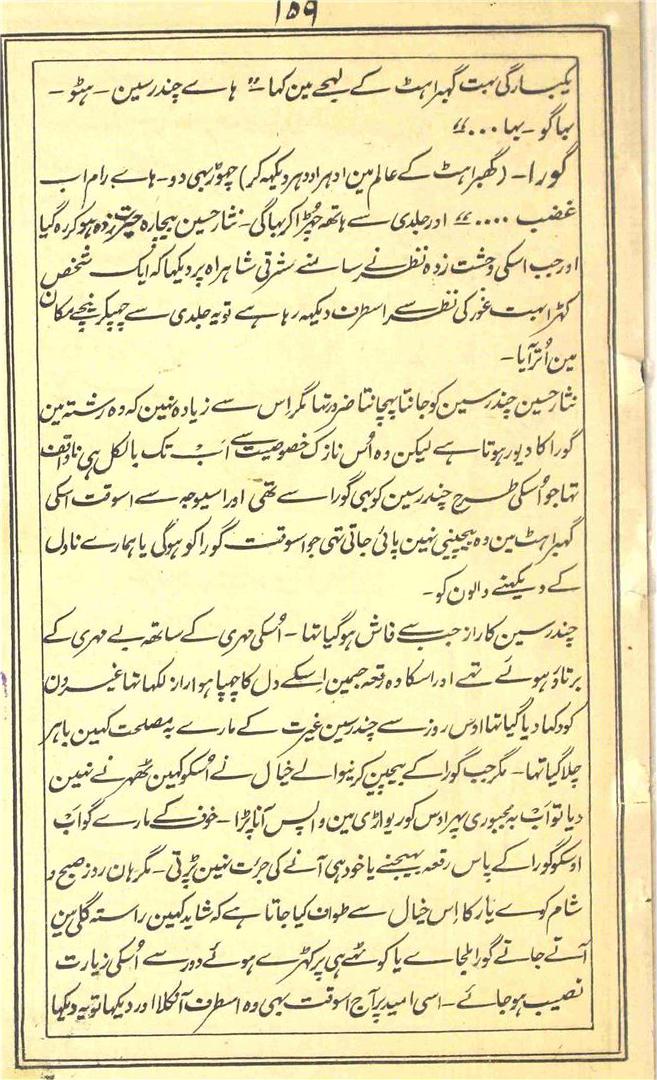 ۱۵۹
یکبارگی بہت گہبراہٹ کے لہجے مین کہا۔ “ہاے چندرسین۔ ہٹو۔
بہاگو۔ بہا...“
گورا۔ (گھبراہٹ کے عالم مین ادہر اودہر دیکہہ کر) چہوڑ بہی دو۔ ہاے رام اب
غضب ....“ اور جلدی سے ہاتھ چہڑا کر بہاگی۔ نثار حسین بیچارہ حیرت زدہ ہو کر رہ گیا
اور جب اسکی وحشت زدہ نظر نے سامنے مشرقی شاہراہ پر دیکہا کہ ایک شخص
کہڑا بہت غور کی نظر سے اسطرف دیکہہ رہا ہے تو یہ جلدی سے چہپکر نیچے مکان
مین اُتر آیا۔
نثار حسین چندرسین کو جانتا پہچانتا ضرور تہا مگر اس سے زیادہ نہین کہ وہ رشتہ مین
گورا کا دیور ہوتا ہے لیکن وہ اُس نازک خصوصیت سے اَبْ تک بالکل ہی ناواقف
تہا جو اُسکی طرح چندرسین کو بہی گورا سے تھی اور اسیوجہ سے اسوقت اسکی
گہبراہٹ مین وہ بیچینی نہین پائی جاتی تہی جو اسوقت گورا کو ہوگی یا ہمارے ناول
کے دیکہنے والون کو۔
چندرسین کا راز جب سے فاش ہو گیا تہا۔ اُسکی مہری کے ساتھہ بے مہری کے
برتاؤ ہوئے تہے اور اسکا وہ رقعہ جسمین اِسکے دل کا چہپا ہوا راز لکہا تہا غیرون
کو دکہا دیا گیا تہا اوس روز سے چندرسین غیرت کے مارے بہ مصلحت کہین باہر
چلا گیا تہا۔ مگر جب گورا کے بیچین کرنیوالے خیال نے اُسکو کہین ٹھہرنے نہین
دیا تو اَبْ بہ مجبوری پہر اوس کو ریواڑی مین واپس آنا پڑا۔ خوف کے مارے گو اَبْ
اوسکو گورا کے پاس رقعہ بہیجنے یا خود ہی آنے کی جرٔت نہین پڑتی۔ مگر ہان روز صبح و
شام کوے یار کا اِس خیال سے طواف کیا جاتا ہے کہ شاید کہین راستہ گلی مین
آتے جاتے گورا ملجاے یا کوٹہے ہی پر کہڑے ہوئے دور سے اُسکی زیارت
نصیب ہو جائے۔ اسی امید پر آج اسوقت بہی وہ اسطرف آنکلا اور دیکہا تو یہ دیکہا